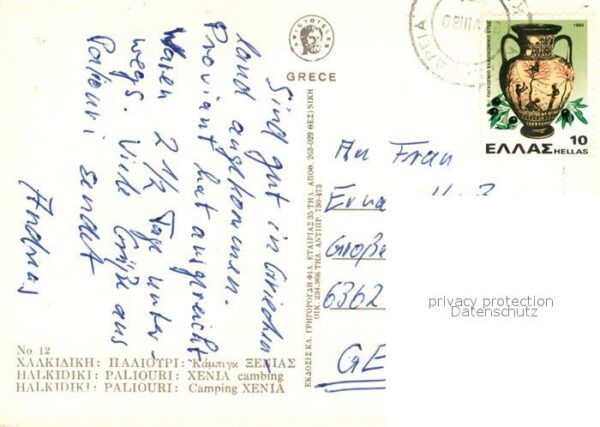 ARISTOTELES
GRECE
Sind gut in Griechen-
land angekommen.
Proviant hat ausgereicht
Waren 2 1/2 Tage unter-
wegs. Viele Grüße aus
Paliouri sendet
Andreas
No 12
ΧΑΛΚΙΔΙΚΗ: ΠΑΛΙΟΥΡΙ: Κάμπιγκ ΞΕΝΙΑΣ
HALKIDIKI: PALIOURI: XENIA cambing
HALKIDIKI: PALIOURI: Camping XENIA
ΕΚΔΟΣΙΣ ΚΛ. ΓΡΗΓΟΡΟΓΔΗ ΦΙΛ. ΕΤΑΙΡΙΑΣ 35 ΤΗΛ. ΑΠΟΘ. 263-029 ΘΕΣ)ΝΙΚΗ
ΟΙΚ. 234.966 ΤΗΛ. ΑΝΤΙΠΡ. 730-475
1980
ΕΛΛΑΣ
HELLAS
10
An Frau
Erna
Große
6362
GE
privacy protection
Datenschutz